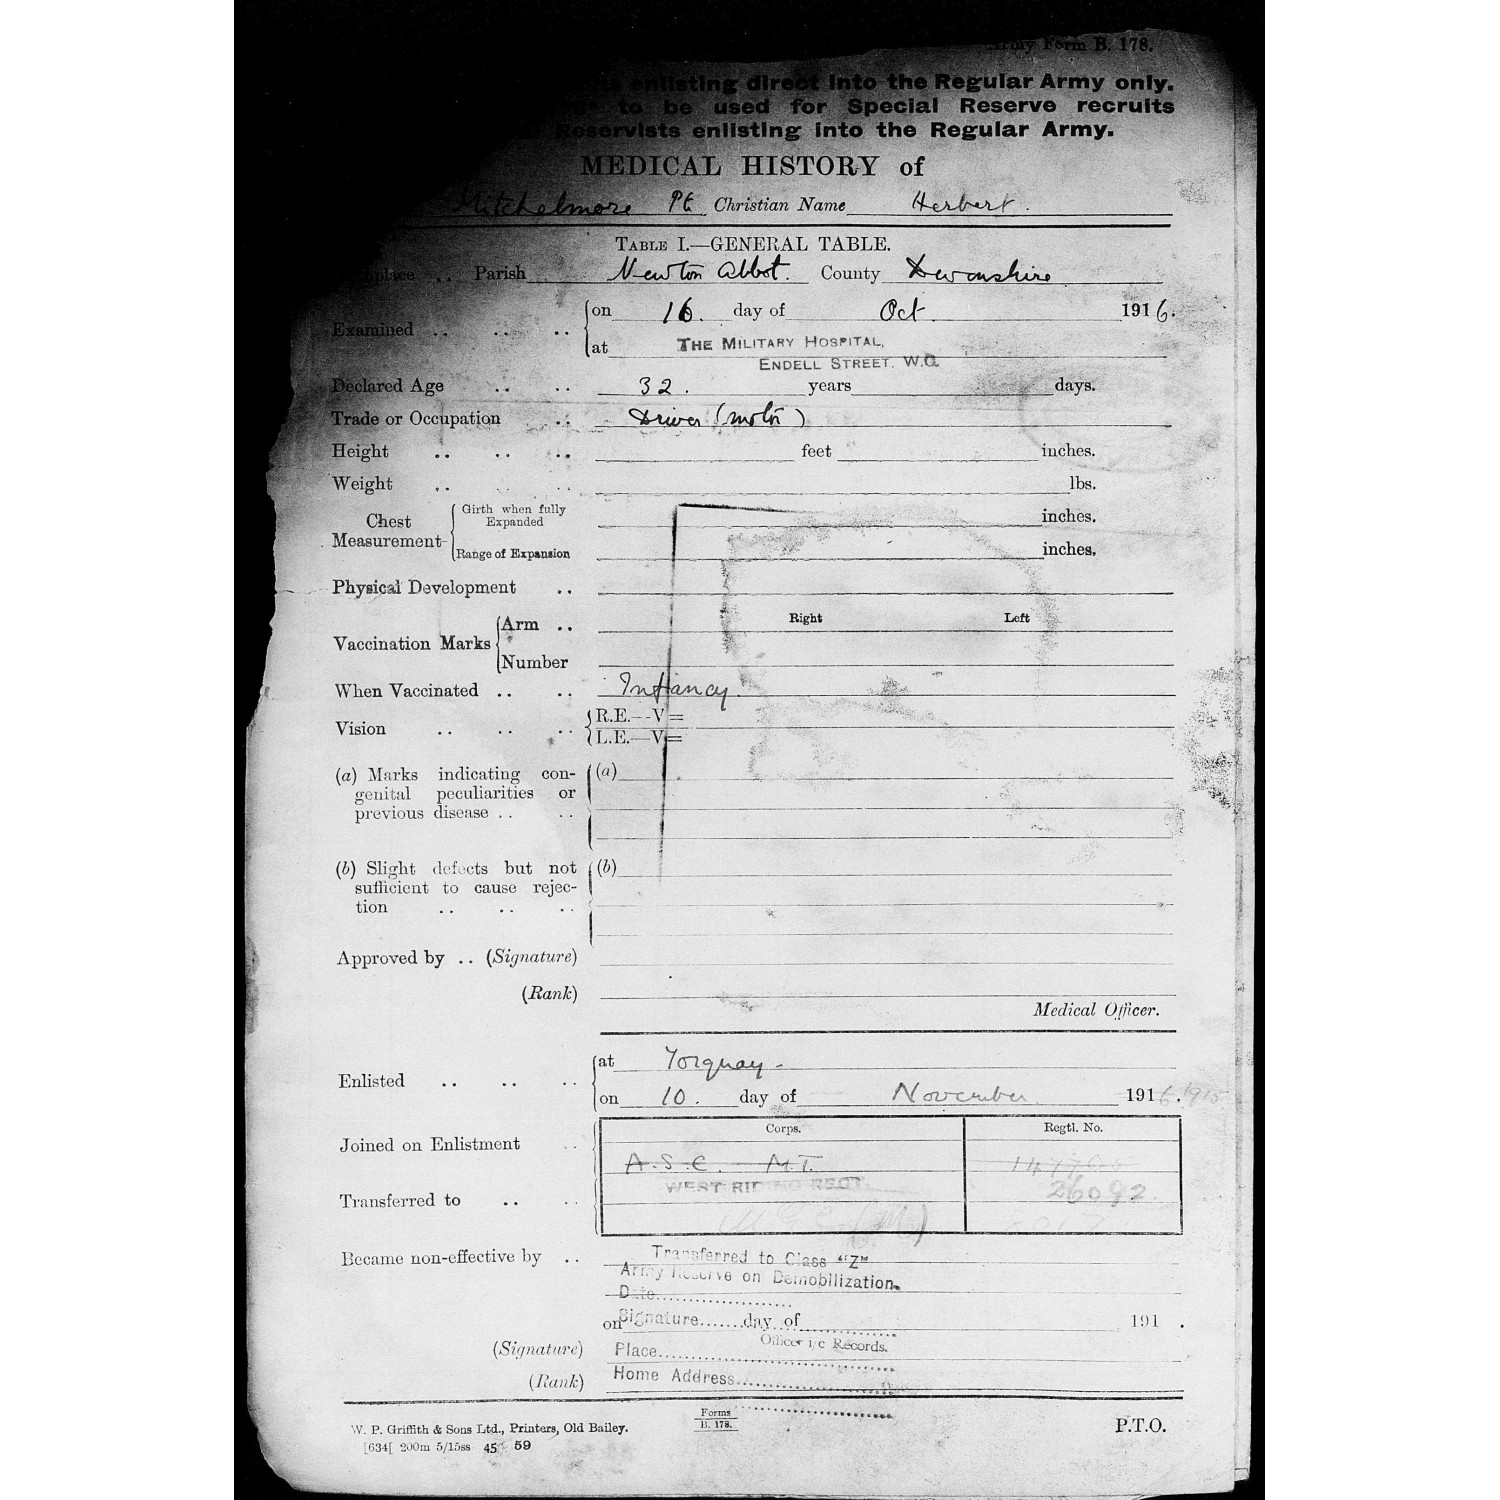 Army Form B. 178.
enlisting direct into the Regular Army only.
to be used for Special Reserve recruits
Reservists enlisting into the Regular Army.
MEDICAL HISTORY of
Mitchelmore Pt Christian Name Herbert.
TABLE I.—GENERAL TABLE.
Parish Newton Abbot. County Devonshire
Examined .. .. .. on 16. day of Oct. 1916.
at THE MILITARY HOSPITAL,
ENDELL STREET. W.C.
Declared Age .. .. 32. years days.
Trade or Occupation .. Driver (motor)
Height .. .. .. feet inches.
Weight .. .. .. lbs.
Chest Measurement Girth when fully Expanded inches.
Range of Expansion inches.
Physical Development ..
Right Left
Vaccination Marks Arm ..
Number
When Vaccinated .. .. Infancy.
Vision .. .. .. R.E.--V=
L.E.—V=
(a) Marks indicating con- (a)
genital peculiarities or
previous disease .. ..
(b) Slight defects but not (b)
sufficient to cause rejec-
tion .. .. ..
Approved by .. (Signature)
(Rank)
Medical Officer.
Enlisted .. .. .. at Torquay -
on 10. day of November 1916. 1915
Corps. Regtl. No.
Joined on Enlistment .. A.S.C. M.T.
WEST RIDING REGT. 26092.
Transferred to .. ..
Became non-effective by .. Transferred to Class "Z"
Army Reserve on Demobilization.
Date..................
on Signature.......day of 191 .
Officer i/c Records.
(Signature) Place..................
(Rank) Home Address..................
W. P. Griffith & Sons Ltd., Printers, Old Bailey.
Forms
B. 178.
P.T.O.
[634[ 200m 5/15ss 45 59